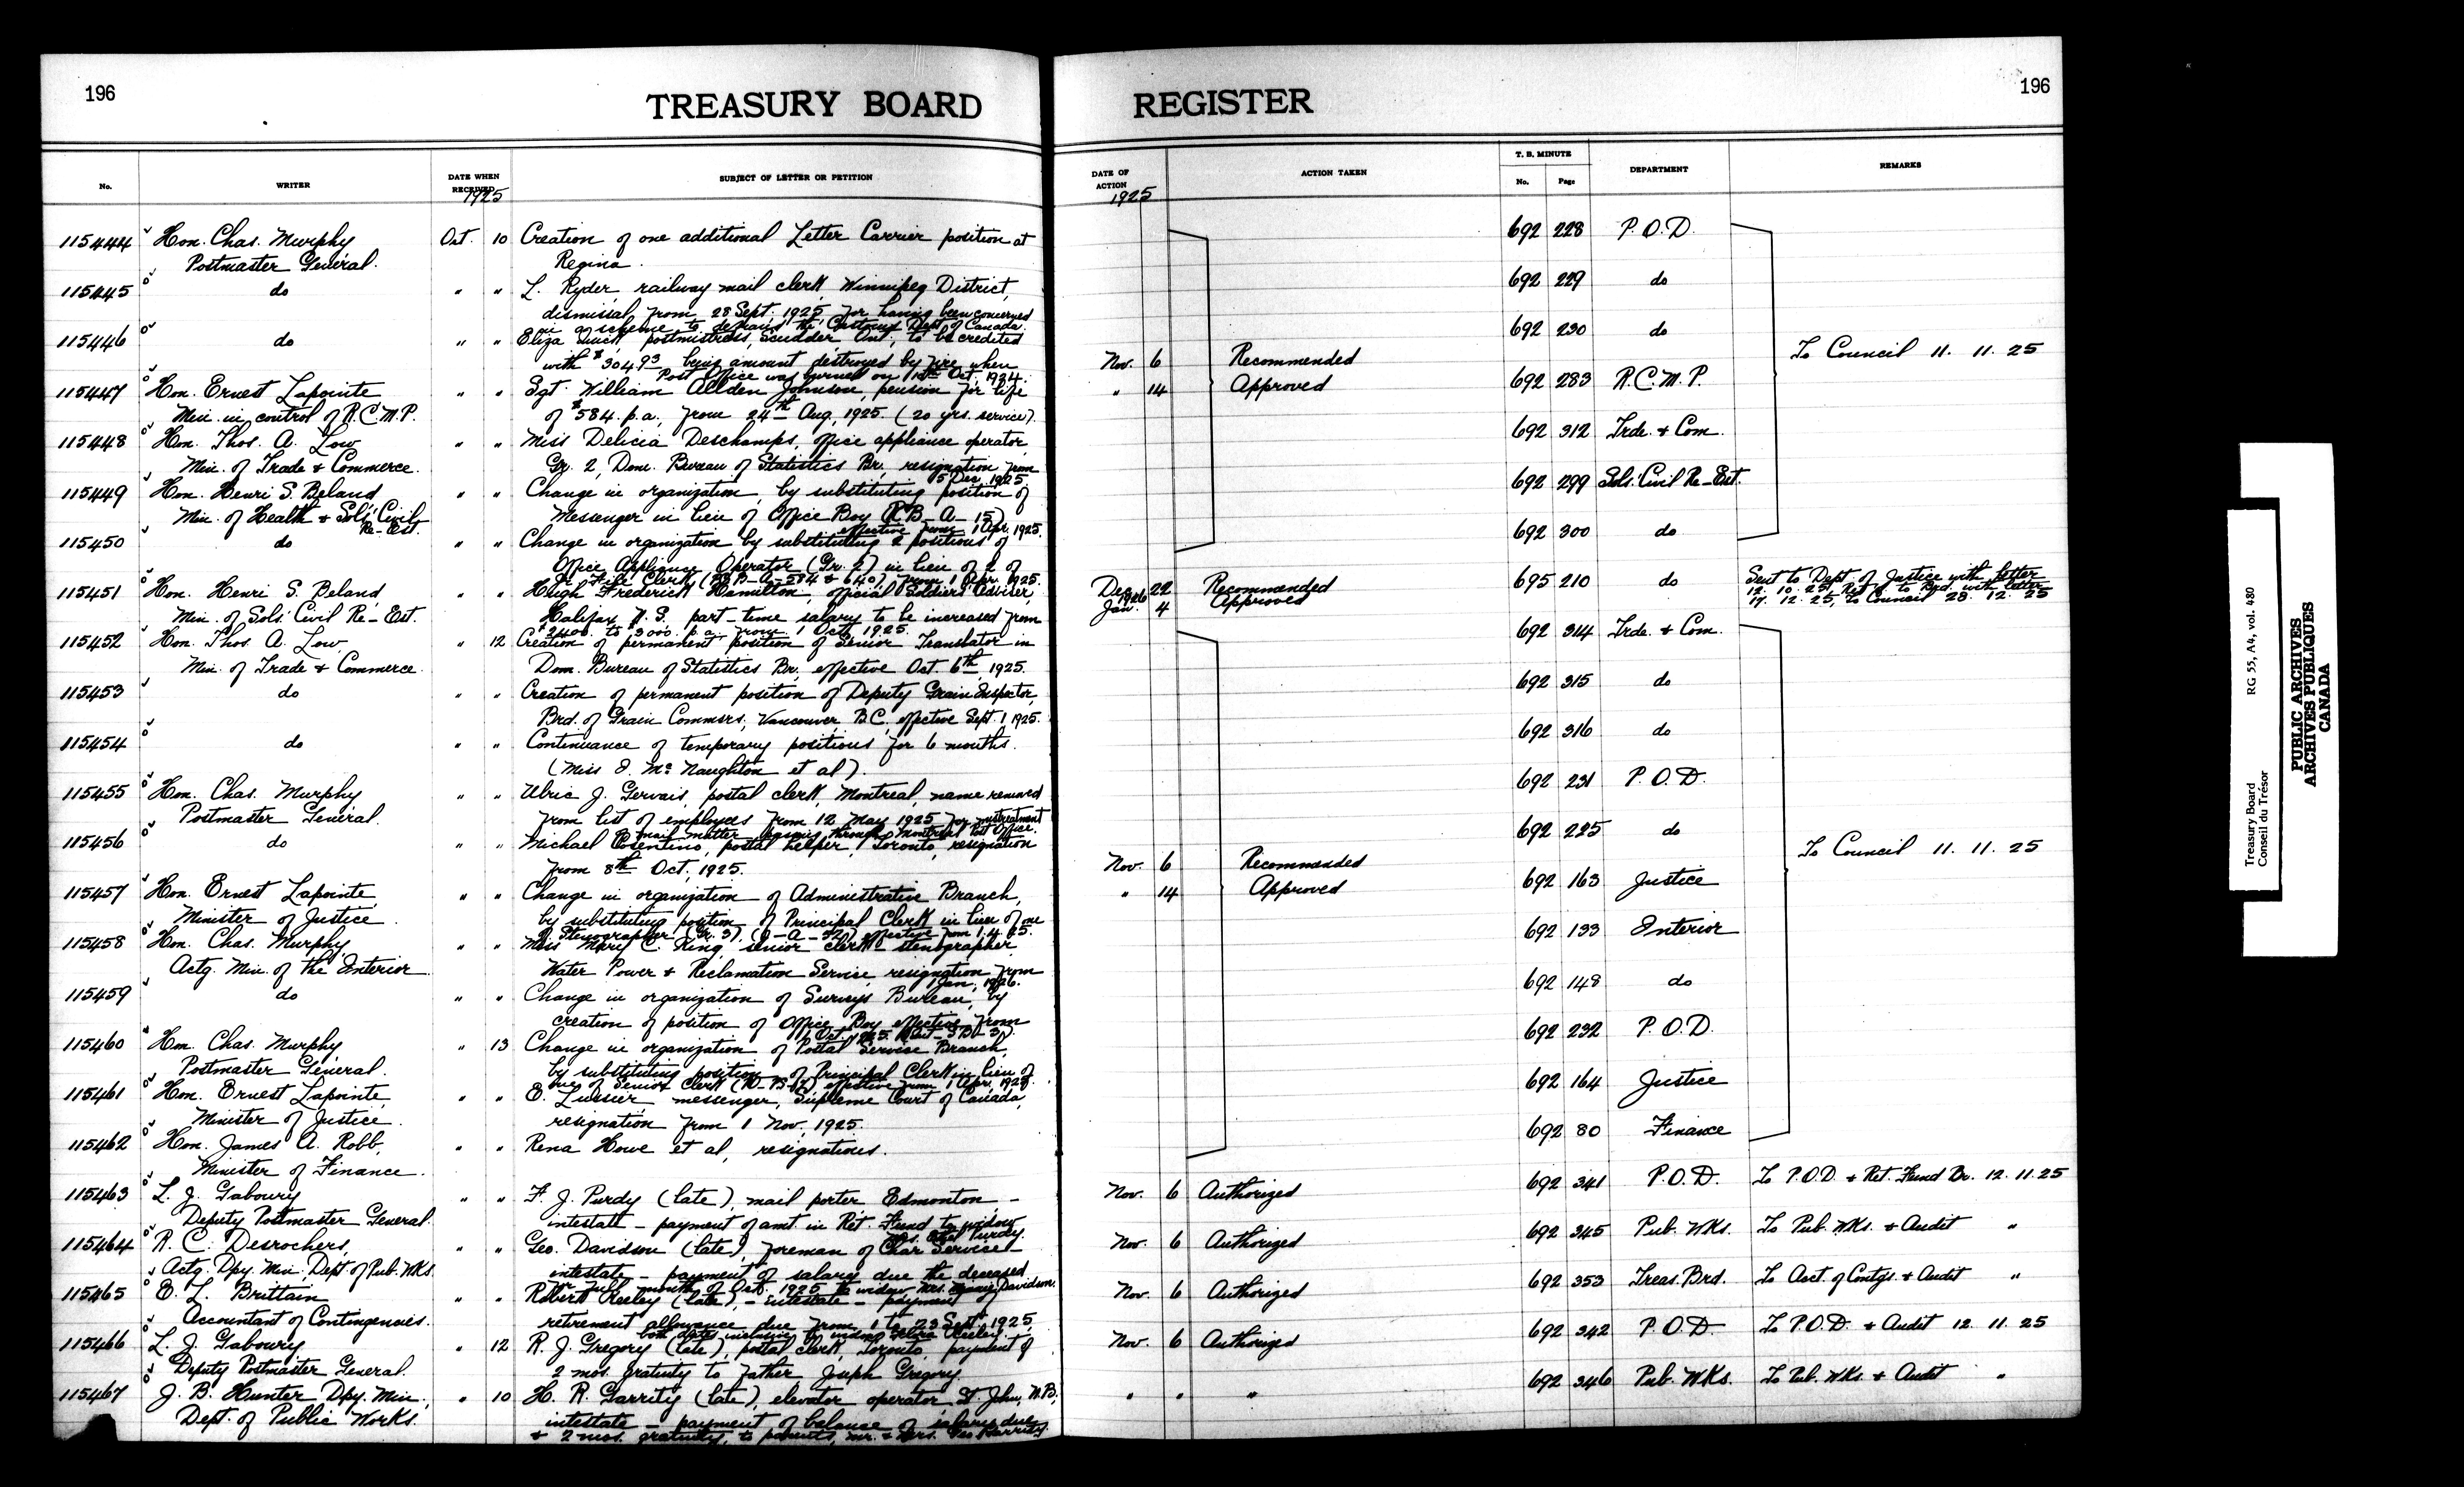 196
TREASURY BOARD
No.
WRITER
DATE WHEN RECEIVED
1925
SUBJECT OF LETTER OR PETITION
115444 Hon. Chas. Murphy Oct. 10 Creation of one additional Letter Carrier position at
Postmaster General. Regina.
115445 do " " L. Ryder, railway mail clerk, Winnipeg District,
dismissal from 28 Sept. 1925 for having been concerned
in scheme to defraud the Customs Dept of Canada.
115446 do " " Eliza Quick, postmistress, Scudder, Ont., to be credited
with $304.93 being amount destroyed by fire when
Post Office was burned on Oct. 1924.
115447 Hon. Ernest Lapointe " " Sgt. William Allden Johnson, pension for life
Min. in control of R.C.M.P. of $584. p.a. from 24th Aug. 1925 (20 yrs. service).
115448 Hon. Thos. A. Low " " Miss Delicia Deschamps, office appliance operator,
Min. of Trade & Commerce. Gr. 2, Dom. Bureau of Statistics Br. resignation from
15 Dec. 1925.
115449 Hon. Henri S. Beland " " Change in organization, by substituting position of
Min. of Health & Sols' Civil Re-Est. Messenger in lieu of Office Boy (R B-A-15)
effective from 1 Apr. 1925.
115450 do " " Change in organization by substituting 2 positions of
Office Appliance Operator (Gr. 2) in lieu of 2 of
Jr. File Clerk from 1 Apr. 1925.
115451 Hon. Henri S. Beland " " Hugh Frederick Hamilton, official Soldiers' Adviser,
Min. of Sols' Civil Re-Est. Halifax N.S. part-time salary to be increased from
$2400. to $3000. p.a. from 1 Oct. 1925.
115452 Hon. Thos. A. Low, " 12 Creation of permanent position of Senior Translator in
Min. of Trade & Commerce. Dom. Bureau of Statistics Br., effective Oct. 6th, 1925.
115453 do " " Creation of permanent position of Deputy Grain Inspector,
Brd. of Grain Commrs., Vancouver B.C. effective Sept. 1 1925.
115454 do " " Continuance of temporary positions for 6 months.
(Miss McNaughton et al).
115455 Hon. Chas. Murphy " " Ulric J. Gervais, postal clerk, Montreal, name removed
Postmaster General. from list of employees from 12 May 1925 for mistreatment
mail matter passing through Montreal Post Office.
115456 do " " Michael Cosentino, postal helper, Toronto, resignation
from 8th Oct. 1925.
115457 Hon. Ernest Lapointe, " " Change in organization of Administration Branch,
Minister of Justice. by substituting position of Principal Clerk in lieu of one
Stenographer (Gr. 3), (J-A-32) effective from 1.4.25.
115458 Hon. Chas. Murphy, " " Miss Mary C. King, senior clerk-stenographer,
Actg. Min. of the Interior Water Power & Reclamation Service, resignation from
1 Jan. 1926.
115459 do " " Change in organization of Surveys Bureau, by
creation of position of Office Boy effective from
1 Oct. 1925.
115460 Hon. Chas. Murphy " 13 Change in organization of Postal Service Branch,
Postmaster General. by substituting position of Principal Clerk in lieu of
one of Senior Clerk effective from 1 Apr. 1925.
115461 Hon. Ernest Lapointe, " " E. Lussier, messenger, Supreme Court of Canada,
Minister of Justice. resignation from 1 Nov. 1925.
115462 Hon. James A. Robb, " " Rena Howe et al, resignations.
Minister of Finance.
115463 L. J. Gaboury " " F. J. Purdy (late), mail porter Edmonton -
Deputy Postmaster General. intestate - payment of amt in Ret. Fund to widow
Mrs. Purdy.
115464 R. C. Desrochers, " " Geo. Davidson (late), foreman of Char Service -
Actg. Dpy. Min. Dept. of Pub. Wks. intestate - payment of salary due the deceased
for month of Oct. 1925 to widow Mrs. Davidson.
115465 E. L. Brittain " " Robert Keeley (late), - intestate - payment of
Accountant of Contingencies. retirement allowance due from 1 to 23 Sept. 1925,
both dates inclusive to widow Keeley.
115466 L. J. Gaboury " 12 R. J. Gregory (late), postal clerk, Toronto, payment of
Deputy Postmaster General. 2 mos. gratuity to father Joseph Gregory.
115467 J. B. Hunter Dpy. Min., " 10 H. R. Garrity (late), elevator operator, St. John, N.B.,
Dept. of Public Works. intestate - payment of balance of salary due
& 2 mos. gratuity, to parents, Mr. & Mrs. Geo Garrity.
REGISTER
196
DATE OF ACTION
1925
ACTION TAKEN
T. B. MINUTE
No.
Page
DEPARTMENT
REMARKS
692 228 P.O.D.
692 229 do
692 230 do
Nov. 6 Recommended To Council 11. 11. 25
" 14 Approved 692 283 R.C.M.P.
692 312 Trde. & Com.
692 299 Sols. Civil Re-Est.
692 300 do
Dec. 22 Recommended 695 210 do Sent to Dept. of Justice with letter
1926
Jan. 4 Approved 12. 10. 25, Ret'd to Brd. with letter
17. 12. 25, To Council 28. 12. 25
692 314 Trde. & Com.
692 315 do
692 316 do
692 231 P.O.D.
692 225 do
Nov. 6 Recommended To Council 11. 11. 25
" 14 Approved 692 163 Justice
692 133 Interior
692 148 do
692 232 P.O.D.
692 164 Justice
692 80 Finance
Nov. 6 Authorized 692 341 P.O.D. To P.O.D. & Ret. Fund Br. 12. 11. 25
Nov. 6 Authorized 692 345 Pub. Wks. To Pub. Wks. & Audit "
Nov. 6 Authorized 692 353 Treas. Brd. To Acct. of Contgs. & Audit "
Nov. 6 Authorized 692 342 P.O.D. To P.O.D. & Audit 12. 11. 25
" " " 692 346 Pub. Wks. To Pub. Wks. & Audit "
Treasury Board RG 55, A4, vol. 480
Conseil du Trésor
PUBLIC ARCHIVES
ARCHIVES PUBLIQUES
CANADA